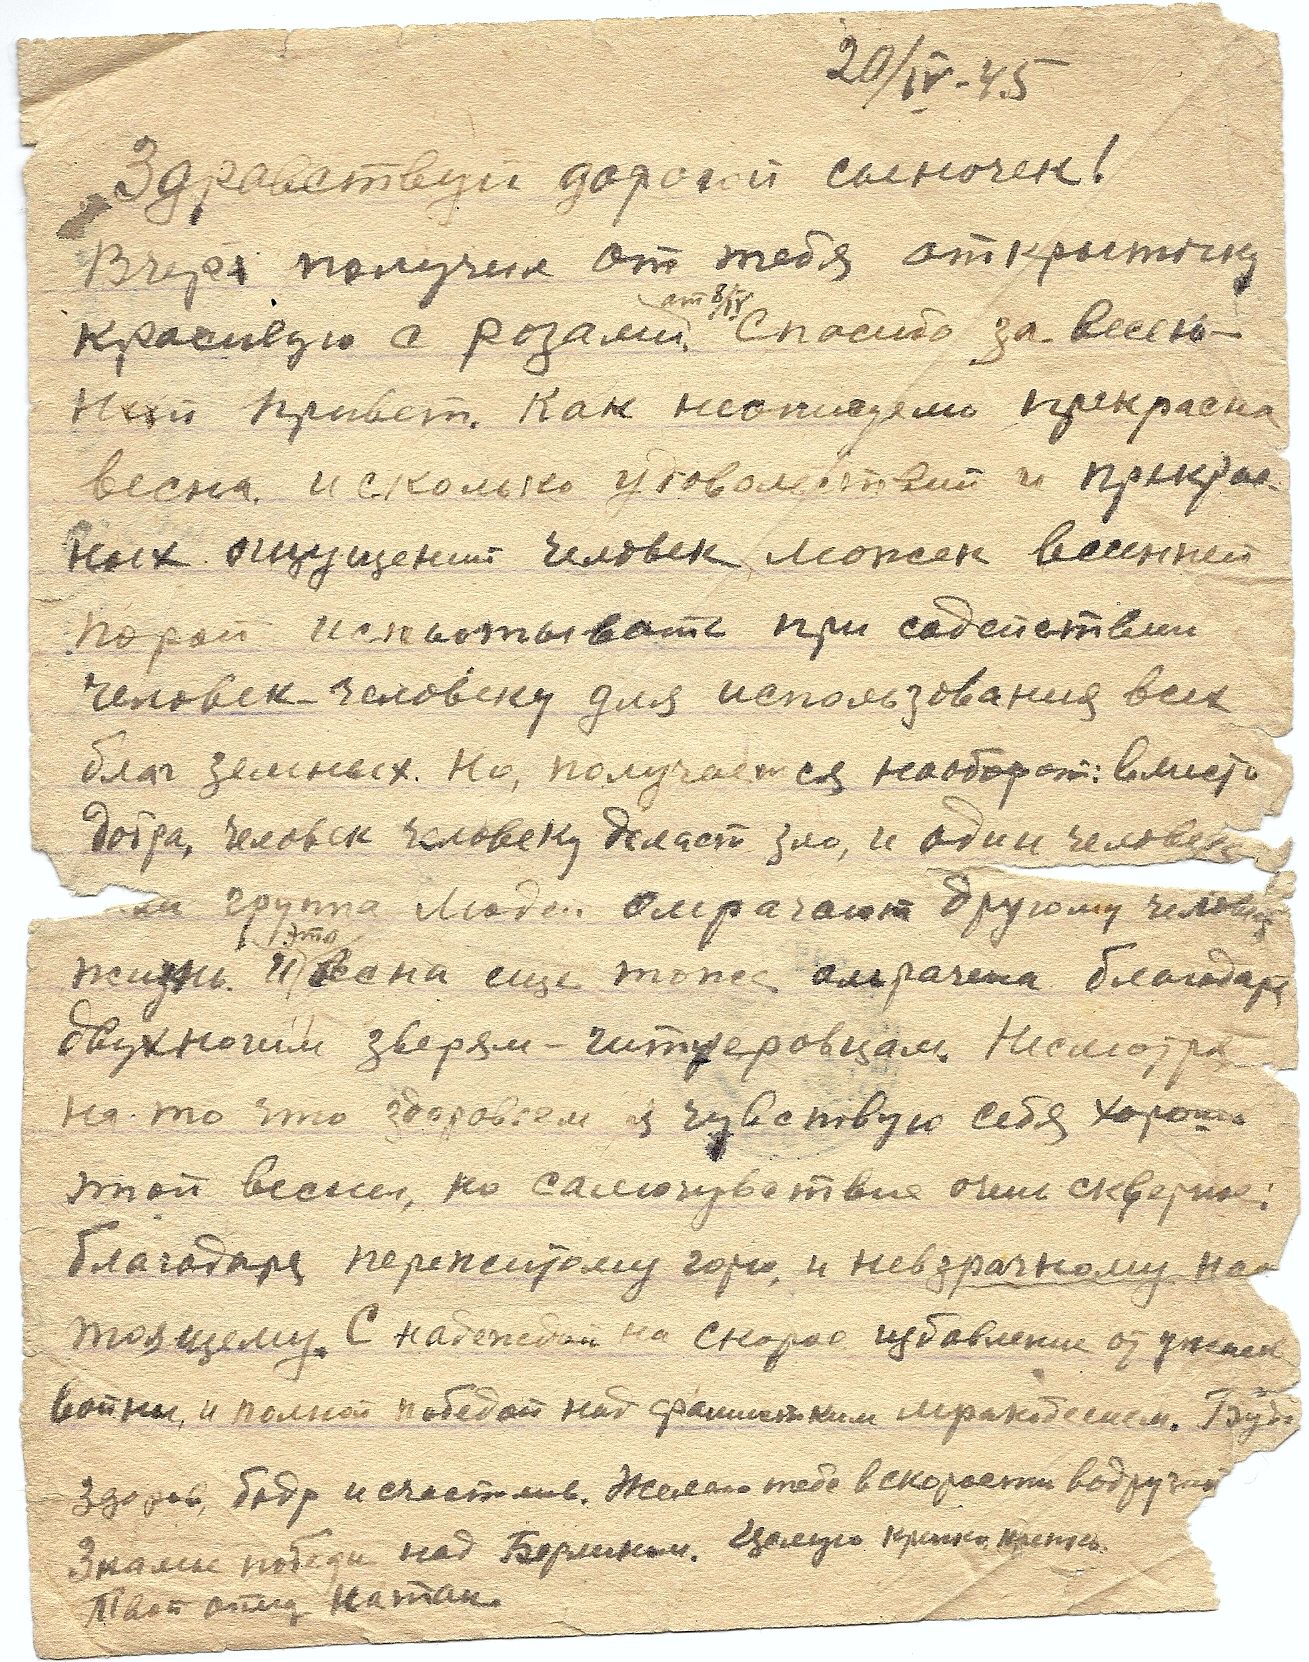 20/IV-45
Здравствуй дорогой сыночек!
Вчера получил от тебя открыточку
от 8/IV
красивую с розами. Спасибо за весен-
ний привет. Как неописуемо прекрасна
весна. и сколько удовольствий и прекрас-
ных ощущений человек может весенней
порой испытывать при содействии
человек-человеку для использования всех
благ земных. Но, получается наоборот: вместо
добра, человек человеку делает зло, и один человек
или группа людей омрачают другому человеку
эта
жизнь. И весна еще тоже омрачена благодаря
двухногим зверям-гитлеровцам. Несмотря
на то что здоровьем я чувствую себя хорошо
этой весной, но самочувствие очень скверное:
благодаря пережитому горю, и невзрачному нас
тоящему. С надеждой на скорое избавление от ужасов
войны, и полной победой над фашистким мракобесием. Будь
здоров, бодр и счастлив. Желаю тебе вскорости водружить
Знамя победы над Берлином. Целую крепко, крепко.
Твой отец Натан.